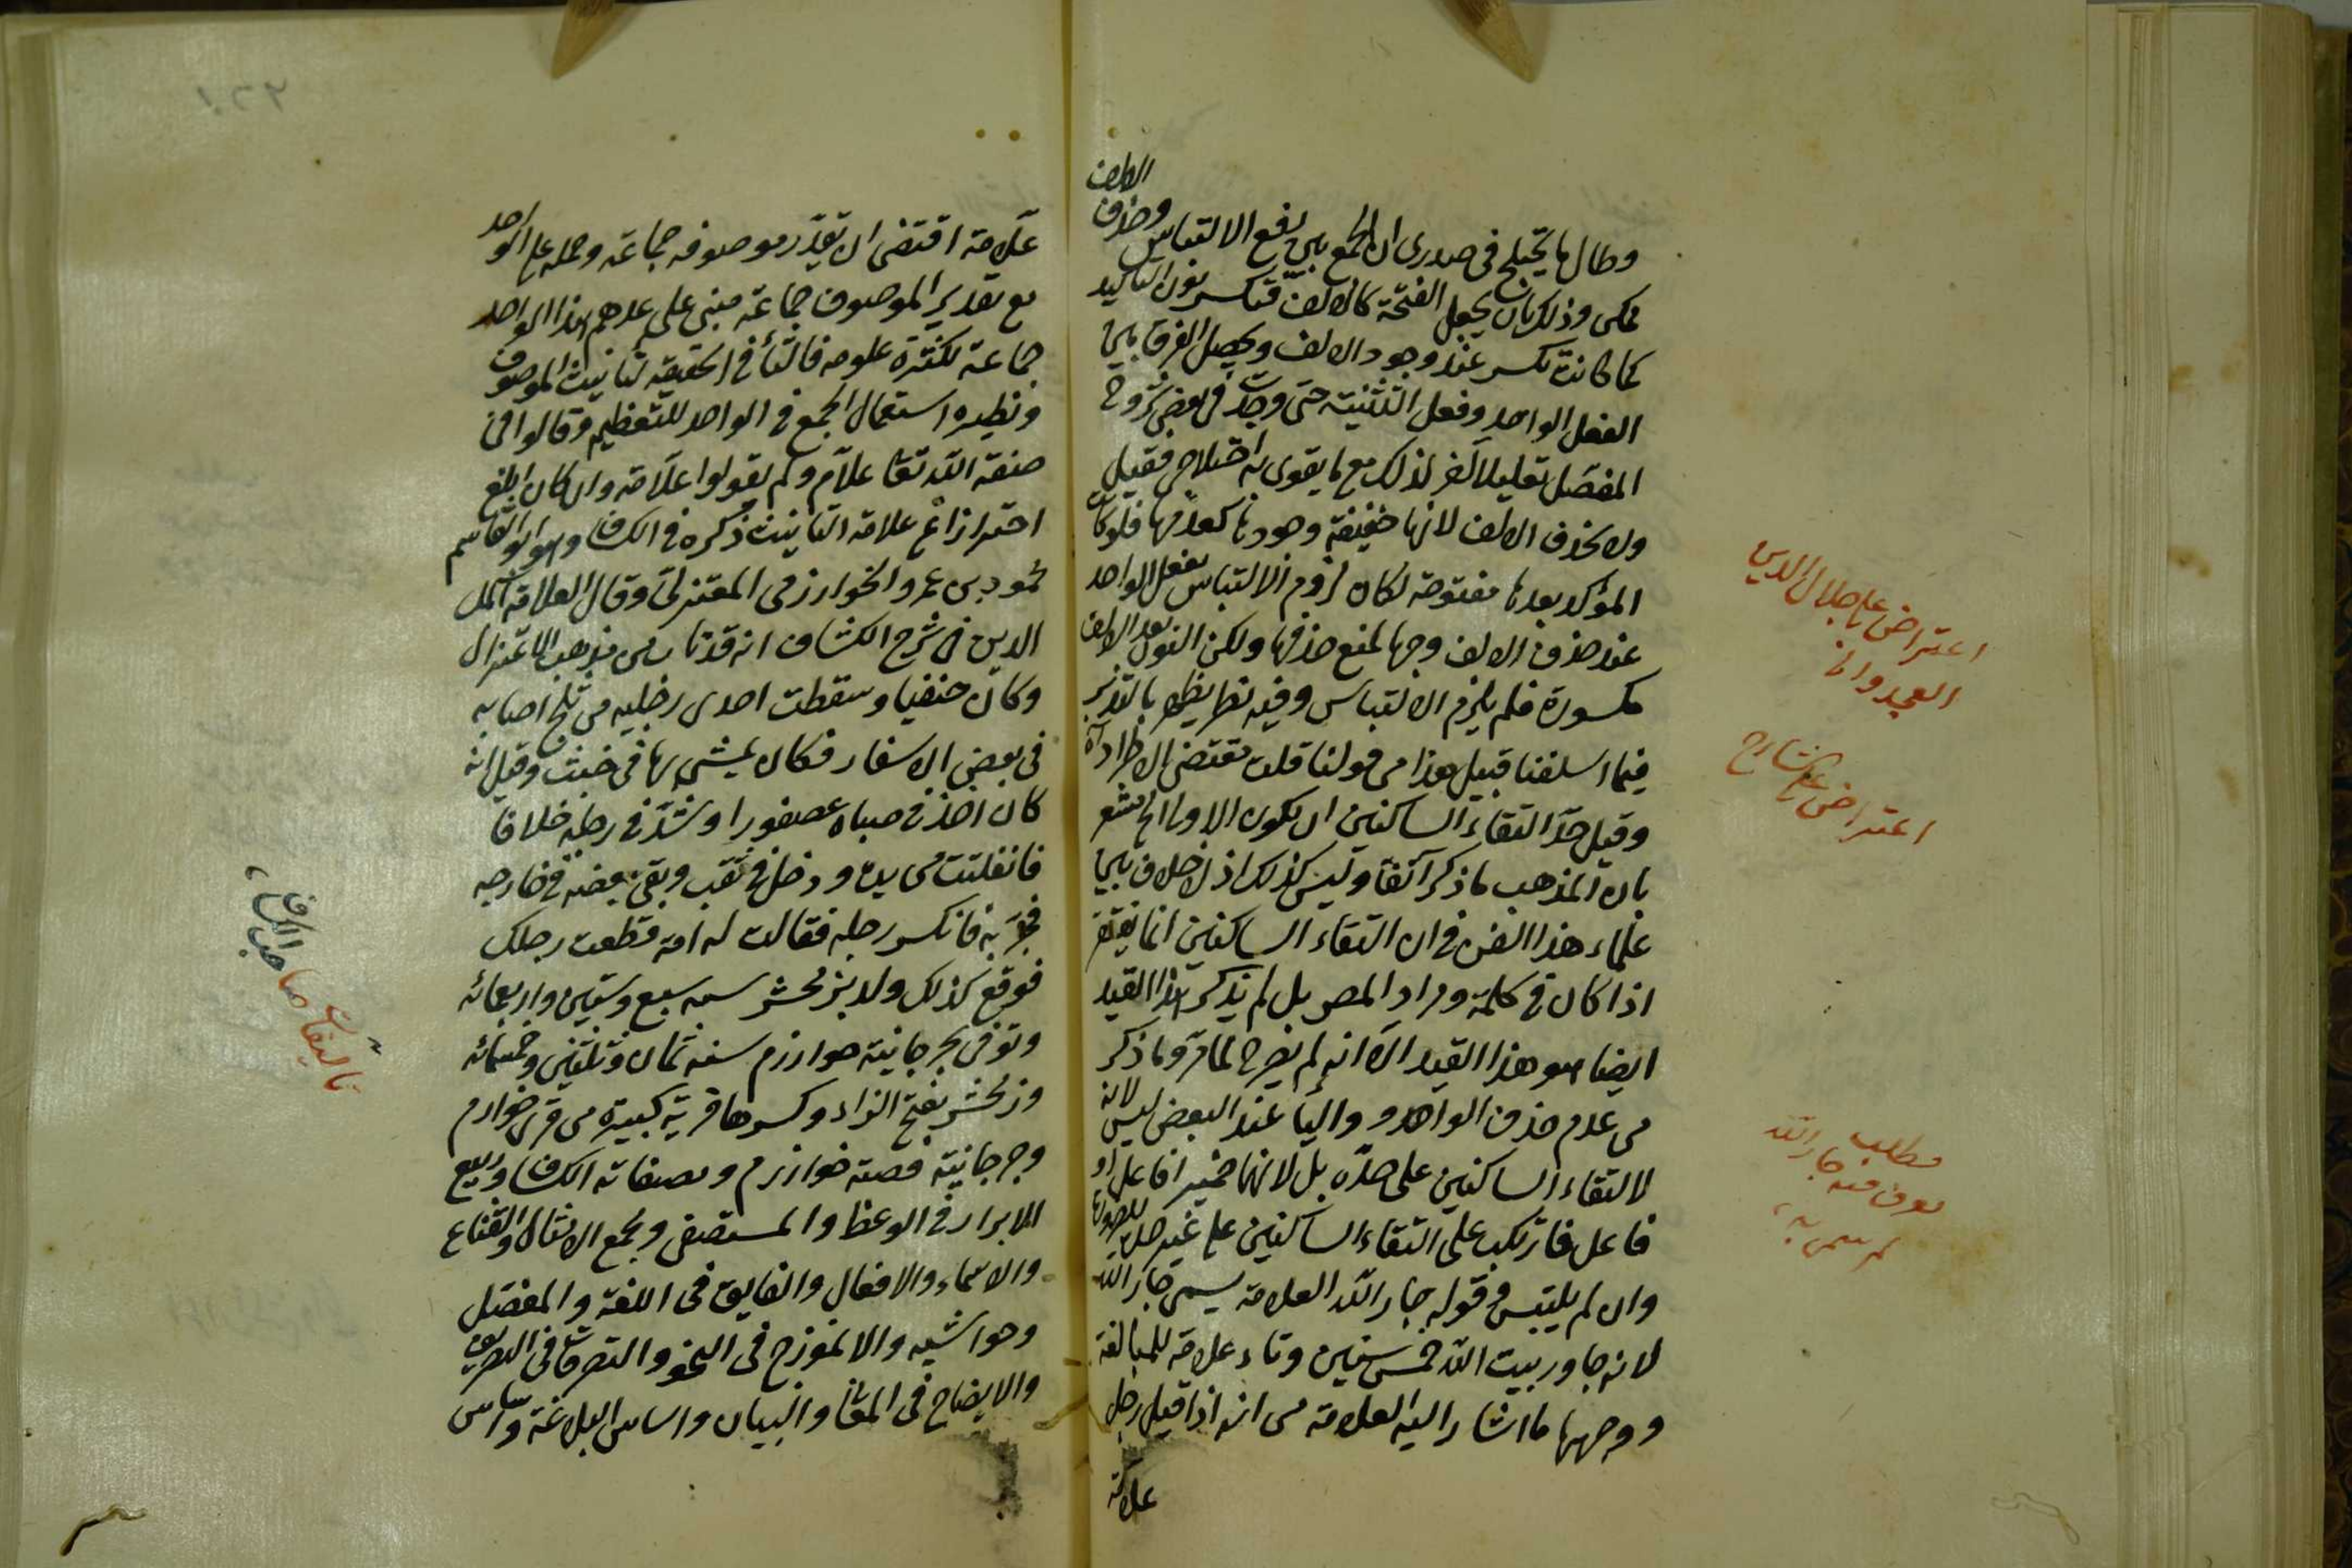 وطال ما يختلج في صدري ان الجمع بين دفع الالتباس وحذف الالف
ممكن وذلك بان يجعل الفتحة كالالف فتكسر نون التاكيد
كما كانت تكسر عند وجود الالف ويحصل الفرق بين
الفعل الواحد وفعل التثنية حتى وجدت في بعض شروح
المفصل تعليلا آخر لذلك مع ما يقوى به اختلاجي فقيل
ولا يحذف الالف لانها خفيفة وجودها كعدمها فلو كان
المؤكد بعدها مفتوحة لكان لزوم الالتباس بفعل الواحد
عند حذف الالف وجها لمنع حذفها ولكن النون بعد الالف
مكسورة فلم يلزم الالتباس وفيه نظر يظهر بالتدبر
فيما اسلفنا قبيل هذا من قولنا قلت مقتضى الاطراد آه
وقيل حد التقاء الساكنين ان يكون الاول الخ مشعر
بان المذهب ما ذكر آنفا وليس كذلك اذ لا خلاف بين
علماء هذا الفن في ان التقاء الساكنين انما يغتفر
اذا كان في كلمة ومراد المصـ بل لم يذكر هذا القيد
ايضا هو هذا القيد الا انه لم يصرح لما مر وما ذكر
من عدم حذف الواو والياء عند البعض ليس لانه
لالتقاء الساكنين على حده بل لانهما ضمير الفاعل او
فاعل فارتكب على التقاء الساكنين على غير حده للضرورة
وان لم يلتبس قوله جار الله العلامة يسمى جار الله
لانه جاور بيت الله خمس سنين وتاء علامة للمبالغة
ووجهها ما اشار اليه العلامة من انه اذا قيل رجل
علامة
اعتراض على جلال الدين
العجدواني
اعتراض على الشارح
مطلب
يعرف منه جار الله
لم سمي به
علامة اقتضى ان يقدر موصوفه جماعة وحمله على الواحد
مع تقدير الموصوف جماعة مبني على عدهم هذا الواحد
جماعة لكثرة علومه فالتاء في الحقيقة لتانيث الموصوف
ونظيره استعمال الجمع في الواحد للتعظيم وقالوا في
صفة الله تعا علام ولم يقولوا علامة وان كان ابلغ
احترازا عن علامة التانيث ذكره في الكشاف وهو ابو القاسم
محمود بن عمر والخوارزمي المعتزلي وقال العلامة اكمل
الدين في شرح الكشاف انه قد تاب من مذهب الاعتزال
وكان حنفيا وسقطت احدى رجليه من ثلج اصابه
في بعض الاسفار فكان يمشي بها في خشب وقيل انه
كان اخذ في صباه عصفورا وشد في رجله خلافا
فانفلتت من يده ودخل في ثقب وبقى بعضه في خارجه
فجر به فانكسر رجله فقالت له امه قطعت رجلك
فوقع كذلك ولد بزمخشر سنه سبع وستين واربعمائه
وتوفي بجرجانية خوارزم سنه ثمان وثلثين وخمسمائه
وزمخشر بفتح الزاء وكسرها قرية كبيرة من قرى خوارزم
وجرجانية قصبة خوارزم ومصنفاته الكشاف وربيع
الابرار في الوعظ والمستصفى ومجمع الامثال والقناع
والاسماء والافعال والفايق في اللغة والمفصل
وحواشيه والانموذج في النحو والتصرفات في التصريف
والايضاح في المعاني والبيان واساس البلاغة واساس
تاليفات صاحب الكشاف